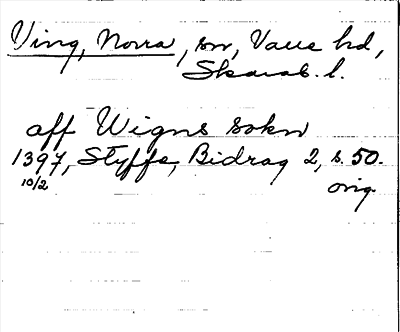 Ving, Norra, sn, Valle hd,
Skarab. l.
aff Wigns sokn
1397, Styffe, Bidrag 2, s. 50.
10/2 orig.